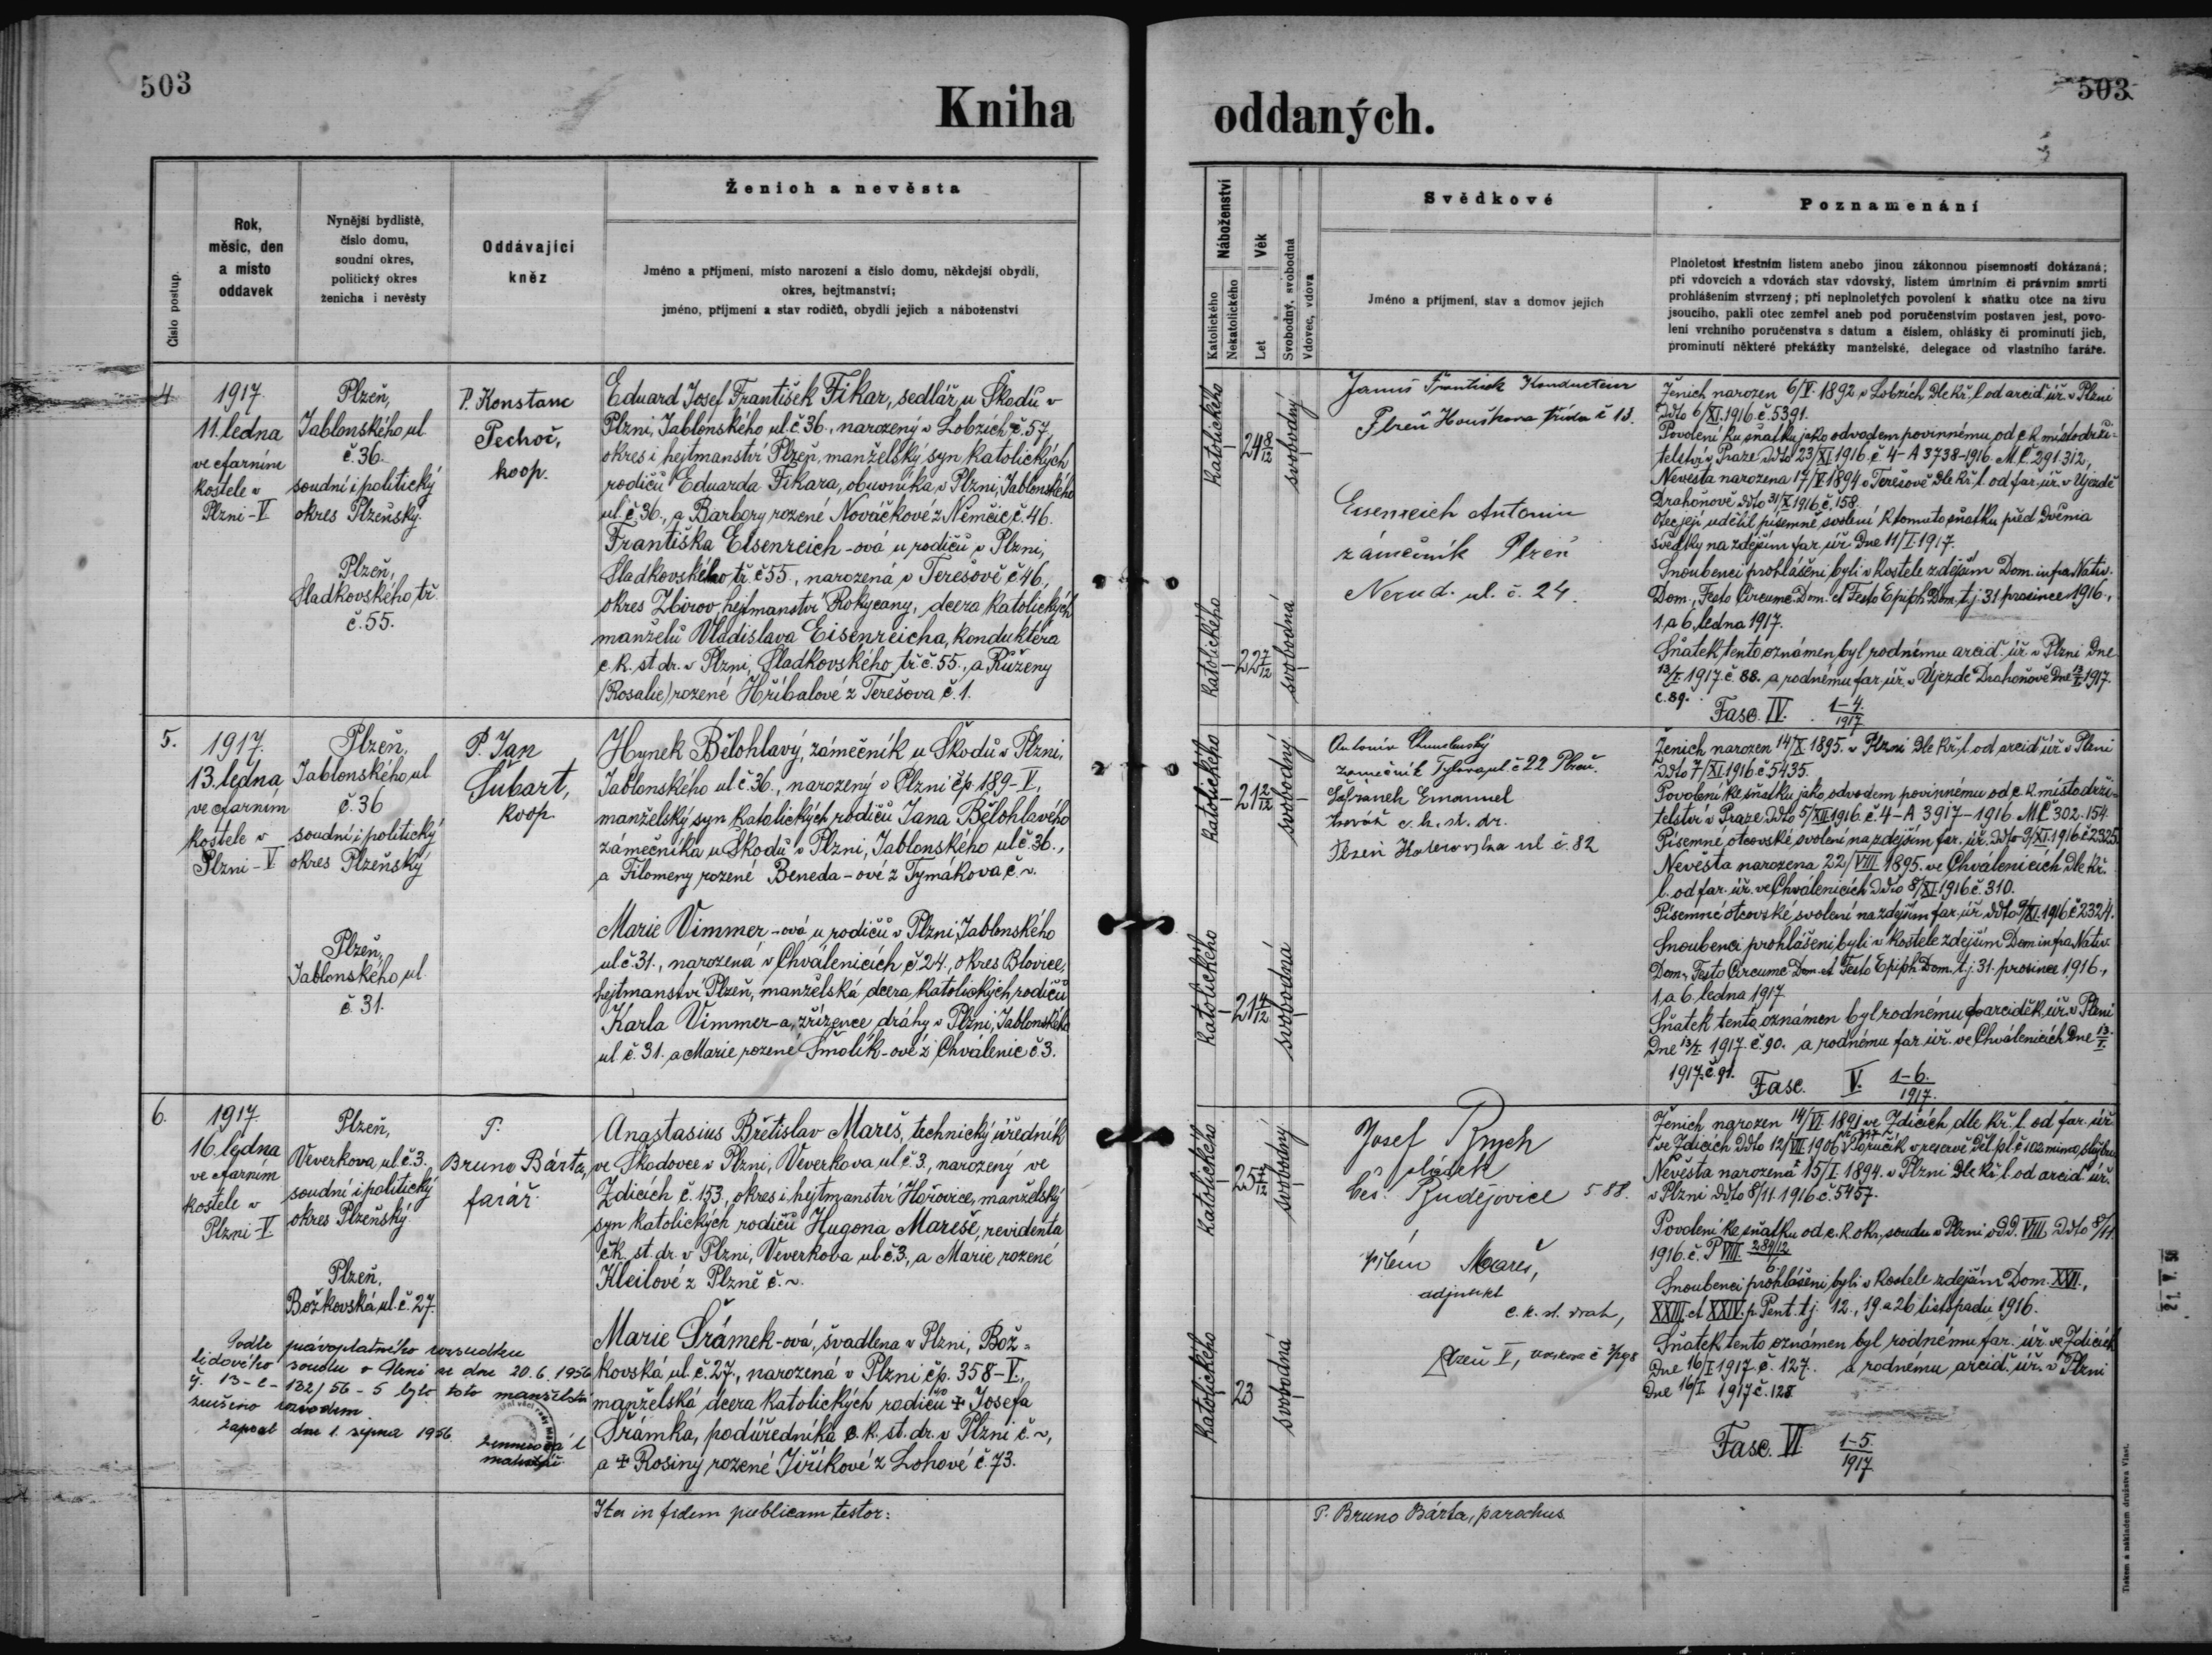 503
Kniha
Číslo postup.
Rok,
měsíc, den
a místo
oddavek
Nynější bydliště,
číslo domu,
soudní okres,
politický okres
ženicha i nevěsty
Oddávající
kněz
Ženich a nevěsta
Jméno a příjmení, místo narození a číslo domu, někdejší obydlí,
okres, hejtmanství;
jméno, příjmení a stav rodičů, obydlí jejich a náboženství
4
1917.
11. ledna
ve farním
kostele v
Plzni-V
Plzeň,
Jablonského ul.
č. 36.
soudní i politický
okres Plzeňský.
Plzeň,
Sladkovského tř.
č. 55.
P. Konstanc
Pechoč,
koop.
Eduard Josef František Fikar, sedlář u Škodů v
Plzni, Jablonského ul. č. 36., narozený v Lobzích č. 57,
okres i hejtmanství Plzeň, manželský syn katolických
rodičů Eduarda Fikara, obuvníka v Plzni, Jablonského
ul. č. 36., a Barbory rozené Nováčkové z Němčic č. 46.
Františka Eisenreich-ová u rodičů v Plzni,
Sladkovského tř. č. 55., narozená v Terešově č. 46,
okres Zbirov, hejtmanství Rokycany, dcera katolických
manželů Vladislava Eisenreicha, konduktéra
c. k. st. dr. v Plzni, Sladkovského tř. č. 55., a Růženy
(Rosalie) rozené Hříbalové z Terešova č. 1.
5.
1917.
13. ledna
ve farním
kostele v
Plzni-V
Plzeň,
Jablonského ul
č. 36
soudní i politický
okres Plzeňský
Plzeň,
Jablonského ul.
č. 31.
P. Jan
Šubart,
koop.
Hynek Bělohlavý, zámečník u Škodů v Plzni,
Jablonského ul. č. 36., narozený v Plzni čp. 189-V.,
manželský syn katolických rodičů Jana Bělohlavého
zámečníka u Škodů v Plzni, Jablonského ul. č. 36.,
a Filomeny rozené Beneda-ové z Tymákova č. ~.
Marie Vimmer-ová u rodičů v Plzni, Jablonského
ul. č. 31., narozená v Chválenicích č. 24., okres Blovice,
hejtmanství Plzeň, manželská dcera katolických rodičů
Karla Vimmer-a, zřízence dráhy v Plzni, Jablonského
ul. č. 31. a Marie rozené Šmolík-ové z Chválenic č. 3.
6.
1917.
16. ledna
ve farním
kostele v
Plzni-V
Plzeň,
Veverkova ul. č. 3.
soudní i politický
okres Plzeňský.
Plzeň,
Božkovská ul. č. 27.
P.
Bruno Bárta,
farář.
Anastasius Břetislav Mareš, technický úředník
ve Škodovce v Plzni, Veverkova ul. č. 3., narozený ve
Zdicích č. 153., okres i hejtmanství Hořovice, manželský
syn katolických rodičů Hugona Mareše, revidenta
c. k. st. dr. v Plzni, Veverkova ul. č. 3., a Marie rozené
Kleilové z Plzně č. ~.
Marie Šrámek-ová, švadlena v Plzni, Bož=
kovská ul. č. 27., narozená v Plzni čp. 358-V.,
manželská dcera katolických rodičů + Josefa
Šrámka, podúředníka c. k. st. dr. v Plzni č. ~,
a + Rosiny rozené Jiříkové z Lohové č. 73.
Podle právoplatného rozsudku
lidového soudu v Plzni ze dne 20. 6. 1956
č. 13-C-132/56-5 bylo toto manželství
zrušeno rozvodem
Zapsal dne 1. srpna 1956
Ita in fidem publicam testor:
503
oddaných.
Náboženství
Katolického
Nekatolického
Věk
Let
Svobodný, svobodná
Vdovec, vdova
Svědkové
Jméno a příjmení, stav a domov jejich
Poznamenání
Plnoletost křestním listem anebo jinou zákonnou písemností dokázaná;
při vdovcích a vdovách stav vdovský, listem úmrtním či právním smrti
prohlášením stvrzený; při neplnoletých povolení k sňatku otce na živu
jsoucího, pakli otec zemřel aneb pod poručenstvím postaven jest, povo-
lení vrchního poručenstva s datum a číslem, ohlášky či prominutí jich,
prominutí některé překážky manželské, delegace od vlastního faráře.
katolického
24 8/12
svobodný
katolického
22 7/12
svobodná
František Kondukteur
Plzeň Houškova třída č 13.
Eisenreich Antonin
zámečník Plzeň
Nerud. ul. č. 24.
Ženich narozen 6/V. 1892 v Lobzích dle kř. l. od arciď. úř. v Plzni
ddto 6/XI. 1916 č. 5391.
Povolení ku sňatku jako odvodem povinnému od c. k. místodrži-
telství v Praze ddto 23/XI 1916. č. 4-A 3738-1916. M. Č. 291.312.
Nevěsta narozena 17/V. 1894 v Terešově dle kř. l. od far. úř. v Újezdě
Drahoňově ddto 31/X 1916 č. 158.
Otec její udělil písemné svolení k tomuto sňatku před dvěma
svědky na zdejším far. úř. dne 11/I. 1917.
Snoubenci prohlášeni byli v kostele zdejším Dom. infra Nativ.
Dom., Festo Circumc. Dom. et Festo Epiph. Dom. t. j. 31. prosince 1916.,
1. a 6. ledna 1917.
Sňatek tento oznámen byl rodnému arciď. úř. v Plzni dne
13/I 1917 č. 88. a rodnému far. úř. v Újezdě Drahoňově dne 13/I 1917
č. 89.
Fasc. IV. 1-4. 1917
katolického
21 2/12
svobodný
katolického
21 4/12
svobodná
Antonín
zámečník Tylova ul. č 22 Plzeň.
Šafránek Emanuel
c. k. st. dr.
Plzeň ul č. 82
Ženich narozen 14/X. 1895. v Plzni dle kř. l. od arciď. úř. v Plzni
ddto 7/XI. 1916 č. 5435.
Povolení ke sňatku jako odvodem povinnému od c. k. místodrži-
telství v Praze ddto 5/XII 1916. č. 4-A 3917-1916. M. Č. 302.154.
Písemné otcovské svolení na zdejším far. úř. ddto 9/XI. 1916 č. 2325.
Nevěsta narozena 22/VIII. 1895. ve Chválenicích dle kř.
l. od far. úř. ve Chválenicích ddto 8/XI. 1916 č. 310.
Písemné otcovské svolení na zdejším far. úř. ddto 9/XI. 1916 č. 2324.
Snoubenci prohlášeni byli v kostele zdejším Dom. infra Nativ.
Dom., Festo Circumc. Dom. et Festo Epiph. Dom. t. j. 31. prosince 1916.,
1. a 6. ledna 1917
Sňatek tento oznámen byl rodnému arciděk. úř. v Plzni
dne 13/I. 1917. č. 90. a rodnému far. úř. ve Chválenicích dne 13/I.
1917. č. 91.
Fasc. V. 1-6. 1917.
katolického
25 7/12
svobodný
katolického
23
svobodná
Josef Rnych
sládek
Čes. Budějovice 588.
Vilém Mareš,
adjunkt
c. k. st. drah,
Plzeň V,
Ženich narozen 14/VI. 1891 ve Zdicích dle kř. l. od far. úř.
ve Zdicích ddto 12/VII. 1906
Nevěsta narozena 15/I. 1894. v Plzni dle kř. l. od arciď. úř.
v Plzni ddto 8/11. 1916 č. 5457.
Povolení ke sňatku od c. k. okr. soudu v Plzni odd. VIII. ddto 8/11.
1916. č. P VIII. 284/12 6
Snoubenci prohlášeni byli v kostele zdejším Dom. XXII.,
XXIII. et XXIV. p. Pent. t. j. 12., 19. a 26 listopadu 1916.
Sňatek tento oznámen byl rodnému far. úř. ve Zdicích
dne 16/I 1917 č. 127. a rodnému arciď. úř. v Plzni
dne 16/I 1917 č. 128
Fasc. VI 1-5 1917
P. Bruno Bárta, parochus.
Tiskem a nákladem družstva Vlast.